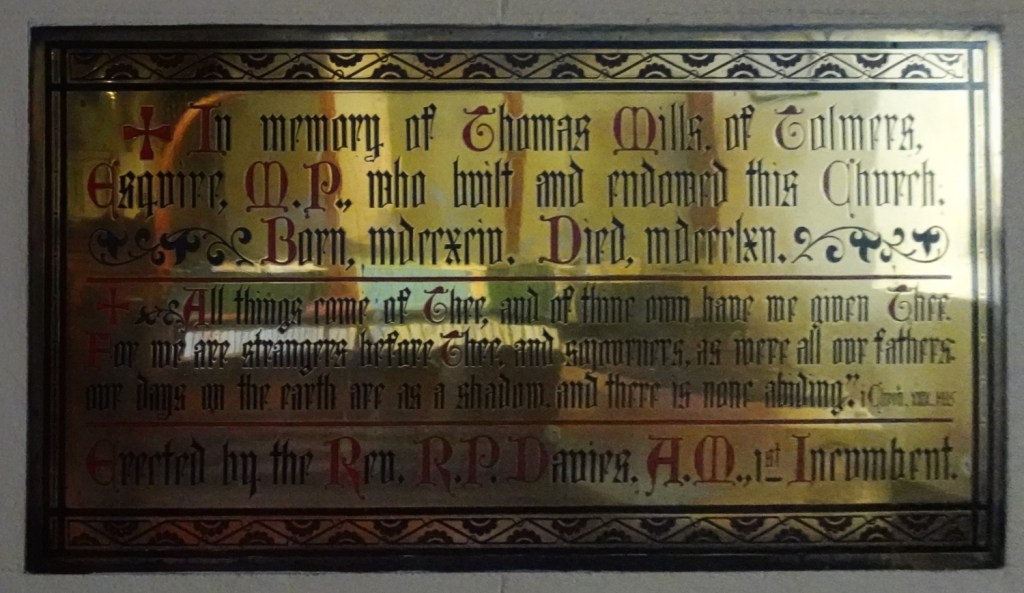 In memory of Thomas Mills, of Tolmers,
Esquire, M.P., who built and endowed this Church.
Born, mdccxciv. Died, mdccclxii.
All things come of Thee, and of thine own have we given Thee.
For we are strangers before Thee, and sojourners, as were all our fathers:
our days on the earth are as a shadow, and there is none abiding." 1 Chron.
Erected by the Rev. R.P. Davies, A.M., 1st Incumbent.